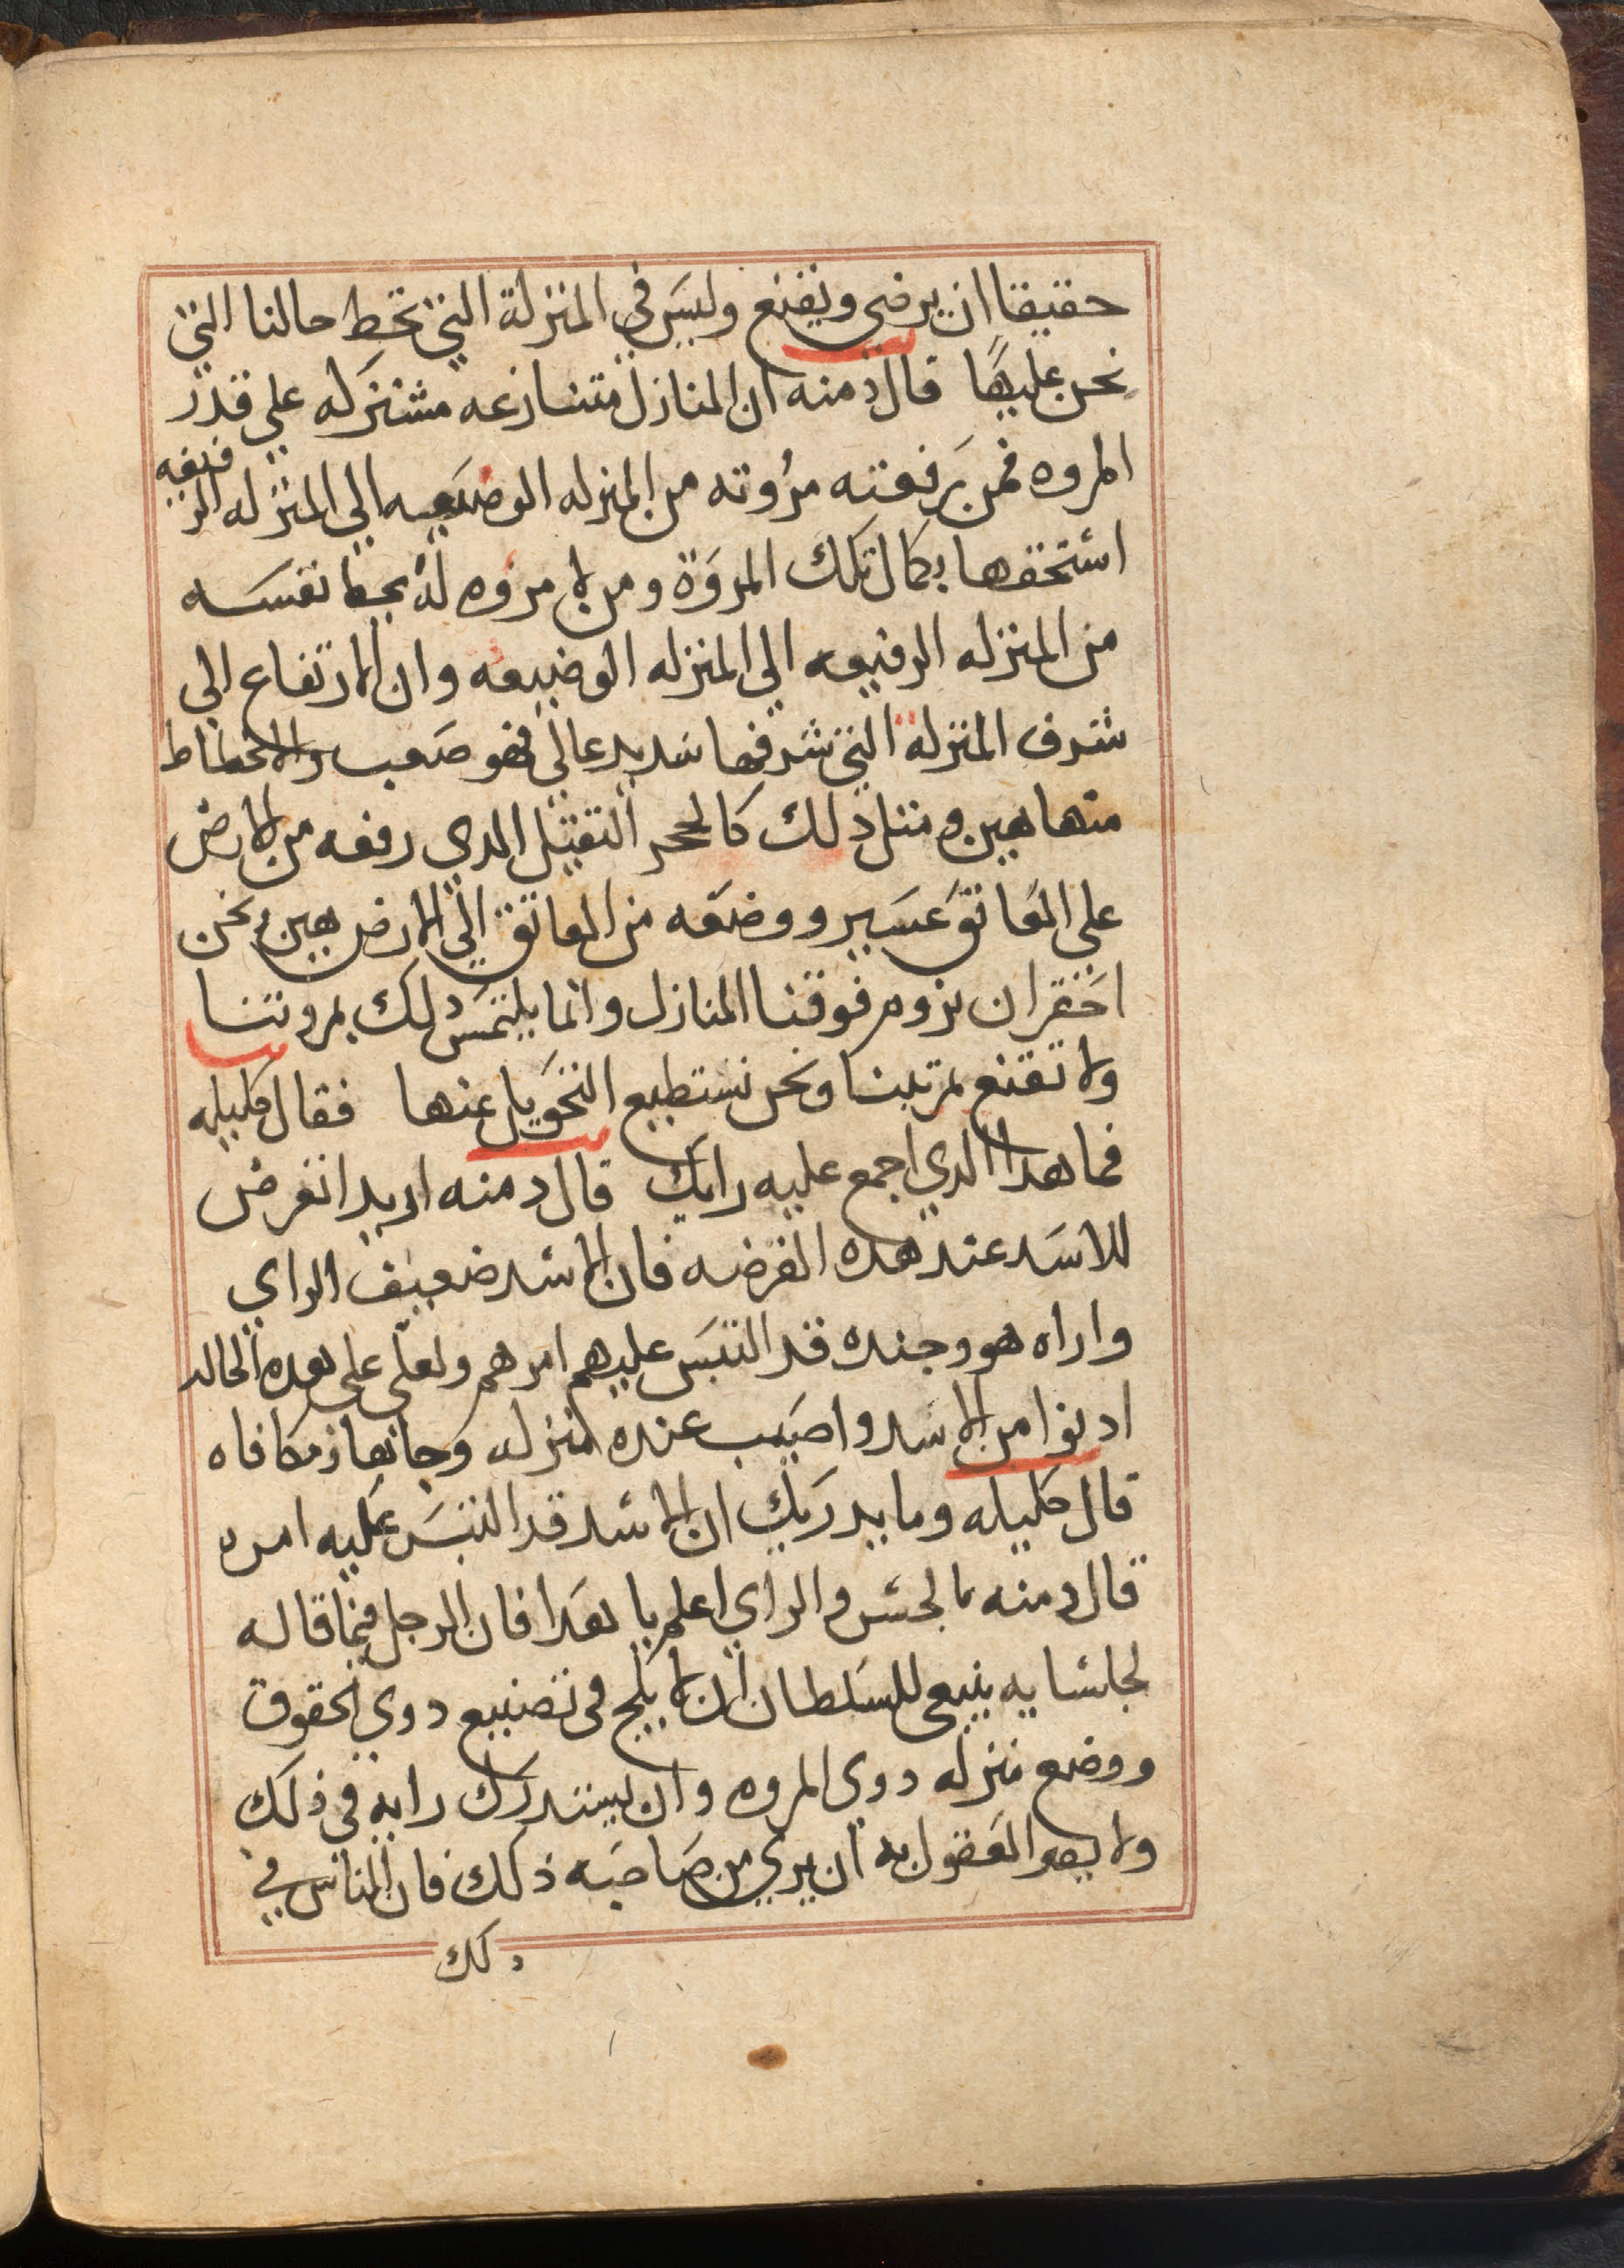 حقيقا ان يرضى ويقنع وليس في المنزلة التي تحط حالنا التي
نحن عليها قال دمنه ان المنازل متنازعه مشتركه علي قدر
المروه فمن رفعته مروته من المنزله الوضيعه الي المنزله الرفيعه
استحقها بكمال تلك المروة ومن لا مروه له يحط نفسه
من المنزله الرفيعه الي المنزله الوضيعه وان الارتفاع الي
شرف المنزلة التي شرفها شديد عالي فهو صعب والانحطاط
منها هين ومثل ذلك كالحجر الثقيل الدي رفعه من الارض
علي العاتق عسير ووضعه من العاتق الي الارض هين ونحن
احق ان نروم فوقنا المنازل وانما يلتمس ذلك بمروتنا
ولا نقنع بمرتبتنا ونحن نستطيع التحويل عنها فقال كليله
فما هدا الدي اجمع عليه رايك قال دمنه اريد اتعرض
للاسد عند هده الفرصه فان الاسد ضعيف الراي
واراه هو وجنده قد التبس عليهم امرهم ولعلي علي هده الحاله
ادنوا من الاسد واصيب عنده منزله وجاها ومكافاه
قال كليله وما يدريك ان الاسد قد التبس عليه امره
قال دمنه بالحس والراي اعلم يا هدا فان الرجل فيما قاله
لجلسايه ينبغي للسلطان ان لا يلج في تضييع دوي الحقوق
ووضع منزله دوي المروه وان يستدرك رايه في ذلك
ولا العقول به ان يري من صاحبه ذلك فان الناس في
دلك